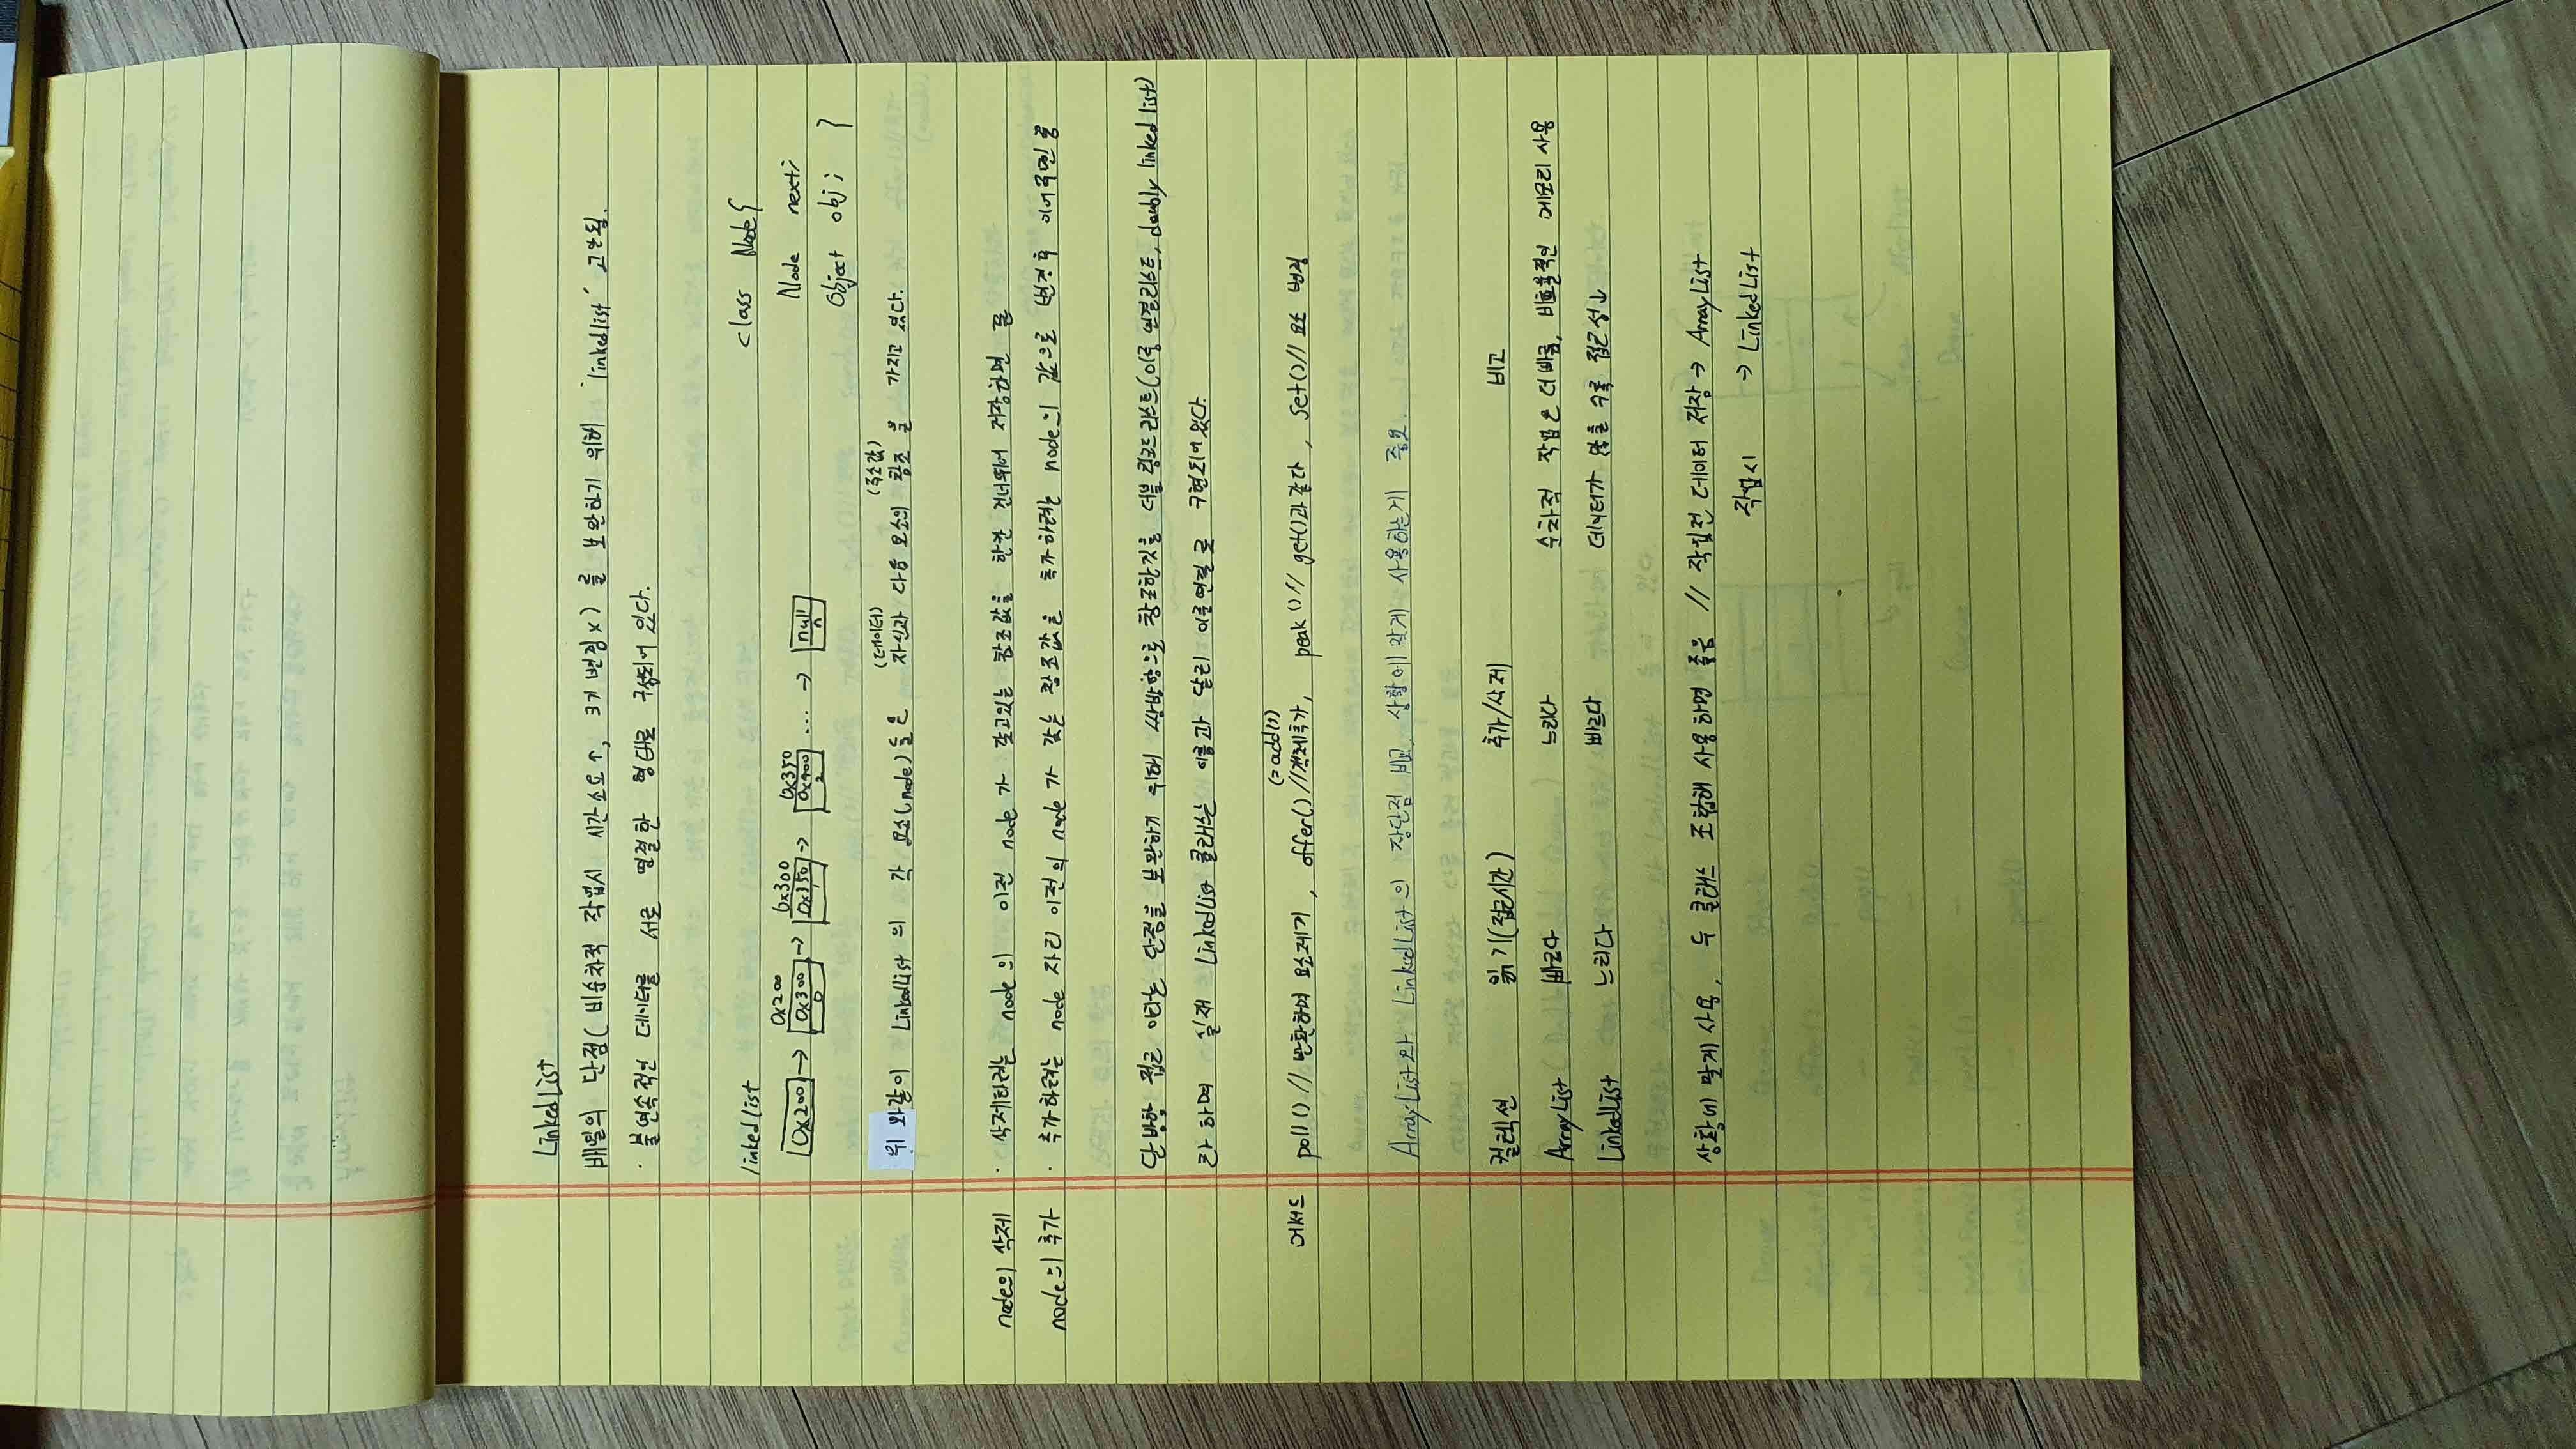 LinkedList
배열의 단점( 비순차적 작업시 시간소요↑, 크기 변경x) 를 보완하기 위해 'linkedlist' 고안됨.
· 불연속적인 데이터를 서로 연결한 형태로 구성되어 있다.
linkedlist
class Node{
0x200 0x300 0x350
0x200 → 0x300 → 0x350 → 0x400 ... → null
0 1 2 n
Node next;
Object obj; }
(데이터) (주소값)
위 와같이 LinkedList 의 각 요소(node)들은 자신과 다음 요소의 참조 를 가지고 있다.
node의 삭제 · 삭제하려는 node 의 이전 node 가 갖고있는 참조값을 한칸 건너뛰어 저장하면 끝
node의 추가 · 추가하려는 node 자리 이전의 node 가 갖는 참조값을 추가하려는 node의 값으로 변경후 이어주면 끝
단방향 접근 이라는 단점을 보완하기 위해 쌍방향으로 참조한것을 더블 링크드리스트(이중 연결리스트, doubly linked list)
라 하며 실제 LinkedList 클래스는 이름과 달리 이중연결 로 구현되어있다.
(=add())
메서드 poll() // 반환하며 요소제거, offer() //객체추가, peak()// get()과 같다, set()// 요소 변경
ArrayList와 LinkedList의 장단점 비교, 상황에 맞게 사용하는게 중요.
컬렉션 읽기(접근시간) 추가/삭제 비고
ArrayList 빠르다 느리다 순차적 작업은 더 빠름, 비효율적인 메모리 사용
LinkedList 느리다 빠르다 데이터가 많을 수록 접근성↓
상황에 맞게 사용, 두 클래스 조합해 사용하면 좋음 // 작업전 데이터 저장 → ArrayList
작업시 → LinkedList